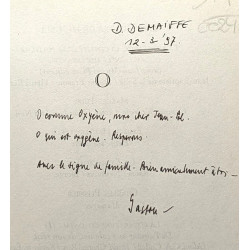 D. DEMAIFFE
12-8'97
O
O comme Oxygène, mon cher Jean-
O qui est oxygène. Respirons
Avec le signe de famille. Bien amicalement à toi —
Gaston